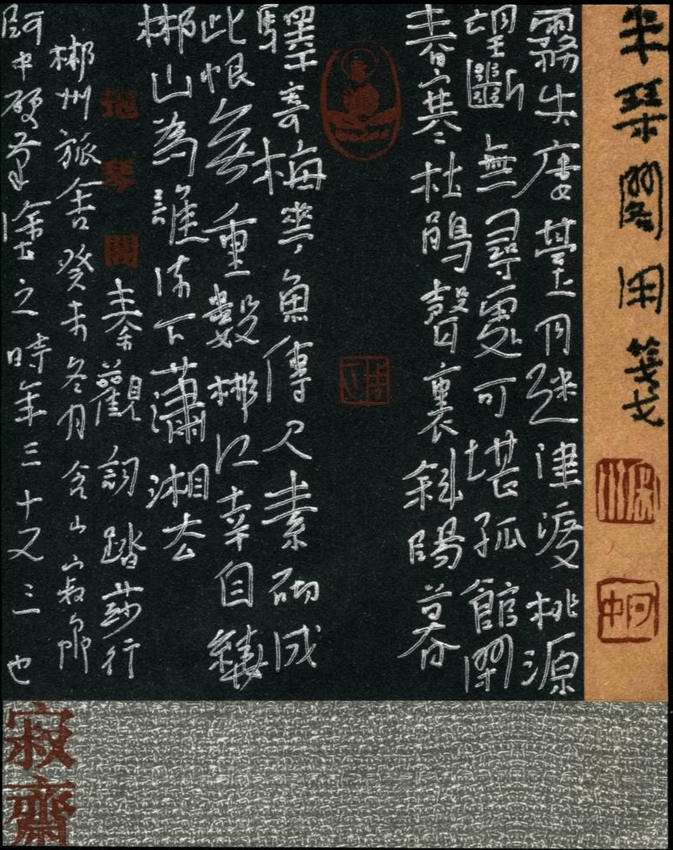 琴閣用箋
霧失廔臺月迷津渡桃源
望斷無尋處可堪孤館閉
春寒杜鵑聲裏斜陽暮
驛寄梅華魚傳尺素砌成
此恨無重數郴江幸自繞
郴山為誰流下瀟湘去
琴閣
秦觀詞踏莎行
郴州旅舍癸未冬月含山寂
阿中硬筆塗之時年三十又三也
寂齋